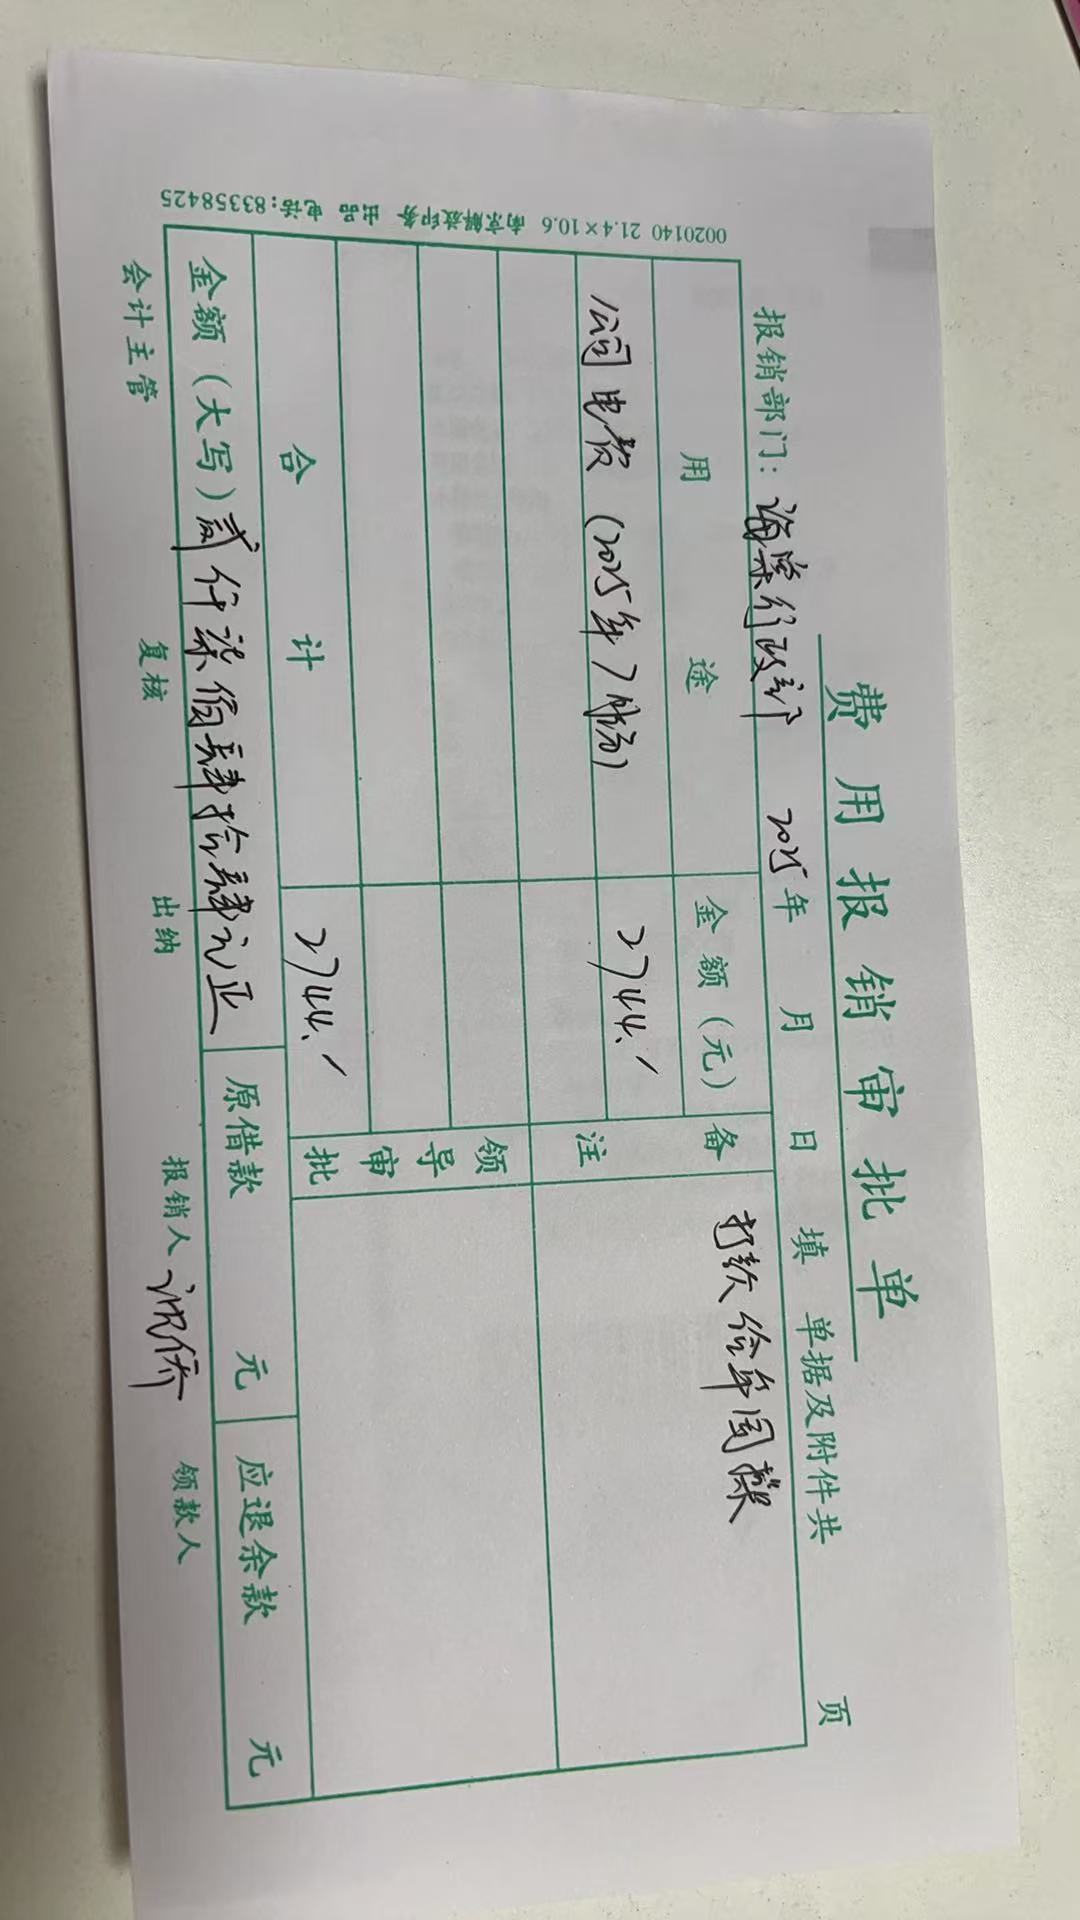 费用报销审批单
报销部门：海棠行政部 2025年 月 日填 单据及附件共 页
用途 金额（元） 备注 打款给年国
公司电费（2025年7月份） 2744.
领导审批
合计 2744.
金额（大写）贰仟柒佰肆拾肆元正 原借款 元 应退余款 元
会计主管 复核 出纳 报销人 侨 领款人
0020140 21.4×10.6 南京解放印务 出品 电话:83358425